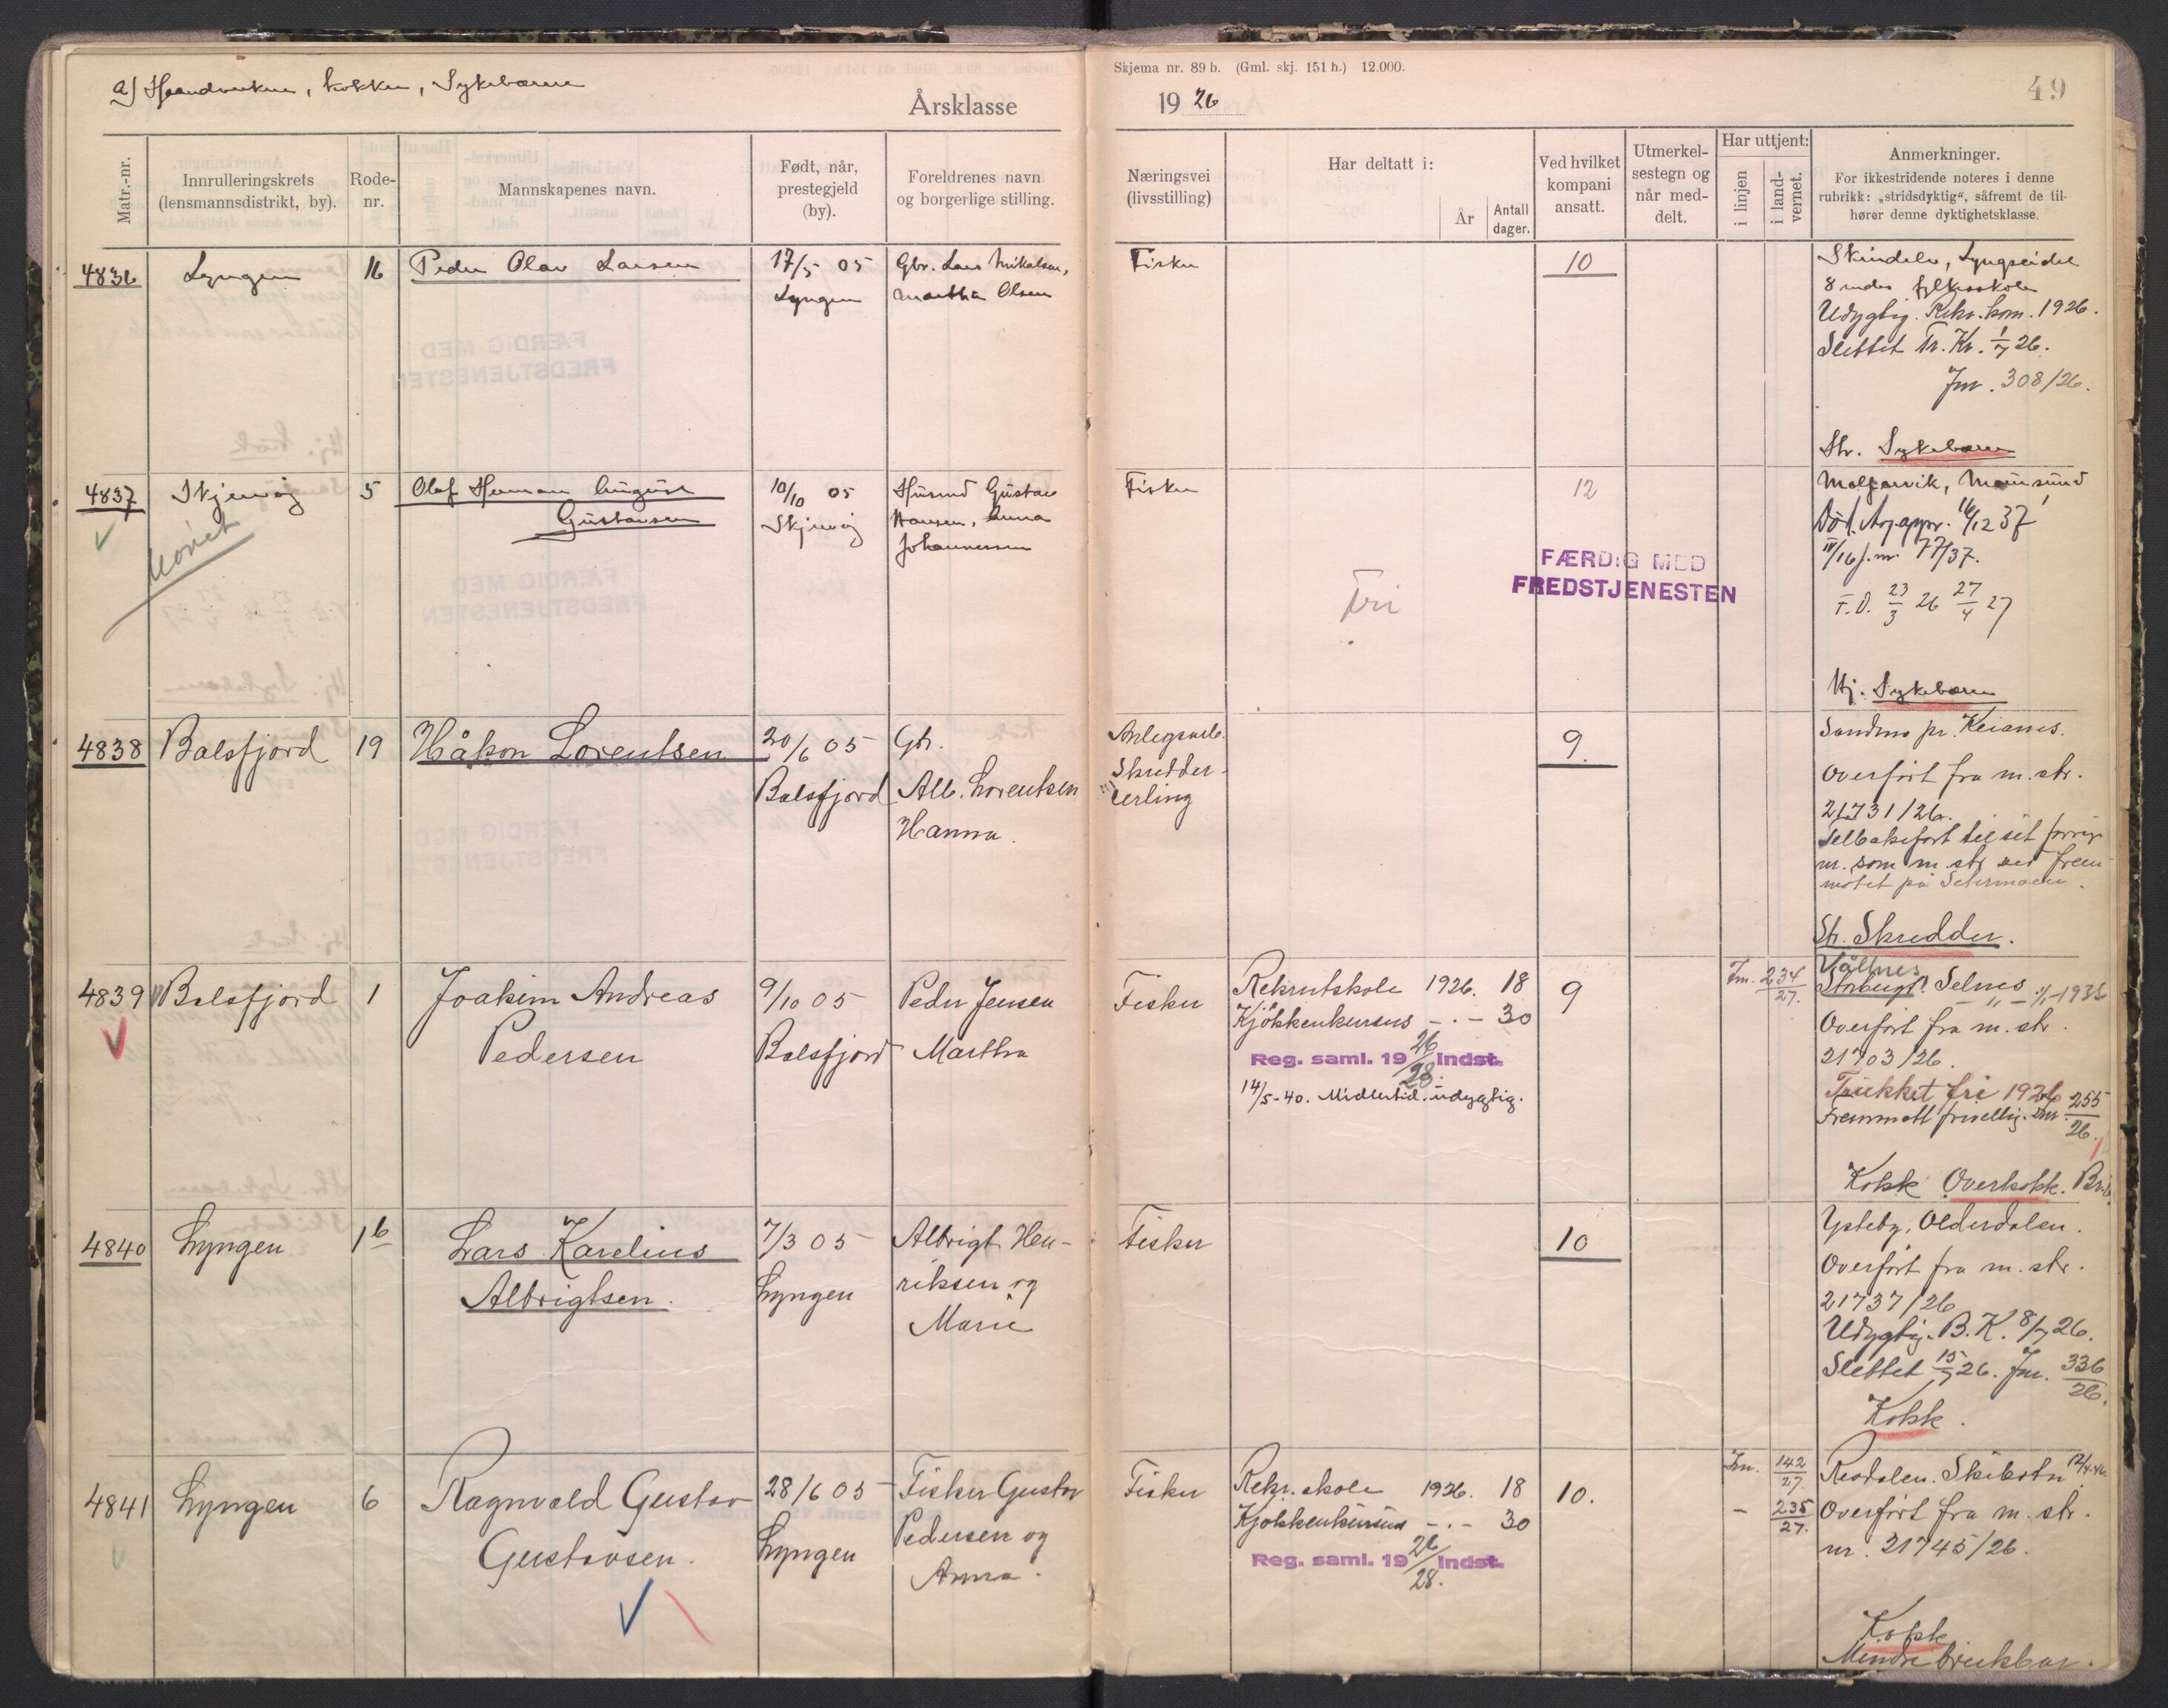 a) Haandverkere, kokker, Sykebærere
Årsklasse
Skjema nr. 89 b. (Gml. skj. 151 h.) 12.000.
19 26
49
Matr.-nr.
Innrulleringskrets
(lensmannsdistrikt, by).
Rode-
nr.
Mannskapenes navn.
Født, når,
prestegjeld
(by).
Foreldrenes navn
og borgerlige stilling.
Næringsvei
(livsstilling)
Har deltatt i:
År
Antall
dager.
Ved hvilket
kompani
ansatt.
Utmerkel-
sestegn og
når med-
delt.
Har uttjent:
i linjen
i land-
vernet.
Anmerkninger.
For ikkestridende noteres i denne
rubrikk: „stridsdyktig“, såfremt de til-
hører denne dyktighetsklasse.
4836
Lyngen
16
Peder Olav Larsen
17/5 05
Lyngen
Gbr. Lars Mikalsen,
Martha Olsen
Fisker
10
Skindelv, Lyngseidet
8 mdrs fylkesskole
Udygtig. Rekr. kom. 1926.
Slettet Tr. Kr. 1/7 26.
Jnr. 308/26.
Str. Sykebærer
4837
Skjervøy
5
Olaf Herman August
Gustavsen
10/10 05
Skjervøy
Husmd Gustav
Hansen, Anna
Johannessen
Fisker
12
Fri
FÆRDIG MED
FREDSTJENESTEN
Maursund
Død. 16/12 37
j.nr. 77/37.
T.D. 23/3 26 27/4 27
Hj. Sykebærer
4838
Balsfjord
19
Håkon Lorentsen
20/6 05
Balsfjord
Gbr.
Alb. Lorentsen
Hanna.
Anlegsarb.
Skredder-
lærling
9.
Sandnes pr.
Overført fra m. str.
21731/26.
Tilbakeført til sit forrige
nr. som m. str ved frem-
møtet på Setermoen.
Str. Skredder.
4839
Balsfjord
1
Joakim Andreas
Pedersen
9/10 05
Balsfjord
Peder Jensen
Martha
Fisker
Rekrutskole 1926. 18
Kjøkkenkursus - . - 30
Reg. saml. 19 26/28 indst.
14/5-40. Midlertid. udygtig.
9
Jnr. 234/27.
Storbugt. Selnes
Overført fra m. str.
21703/26.
Trukket fri 1926
Fremmøtt frivillig. Jnr. 255/26.
Kokk Overkokk.
4840
Lyngen
16
Lars Karelius
Albrigtsen.
7/3 05
Lyngen
Albrigt Hen-
riksen og
Marie
Fisker
10
Ysteby, Olderdalen.
Overført fra m. str.
21737/26
Udygtig. B. K. 8/7 26.
Slettet 15/7 26. Jnr. 336/26.
Kokk.
4841
Lyngen
6
Ragnvald Gustav
Gustavsen.
28/6 05
Lyngen
Fisker Gustav
Pedersen og
Anna.
Fisker
Rekr. skole 1926. 18
Kjøkkenkursus - . - 30
Reg. saml. 19 26/28. indst.
10.
Jnr. 142/27.
- 235/27.
Skibotn
Overført fra m. str.
nr. 21745/26.
Kokk
Mindre brukbar.